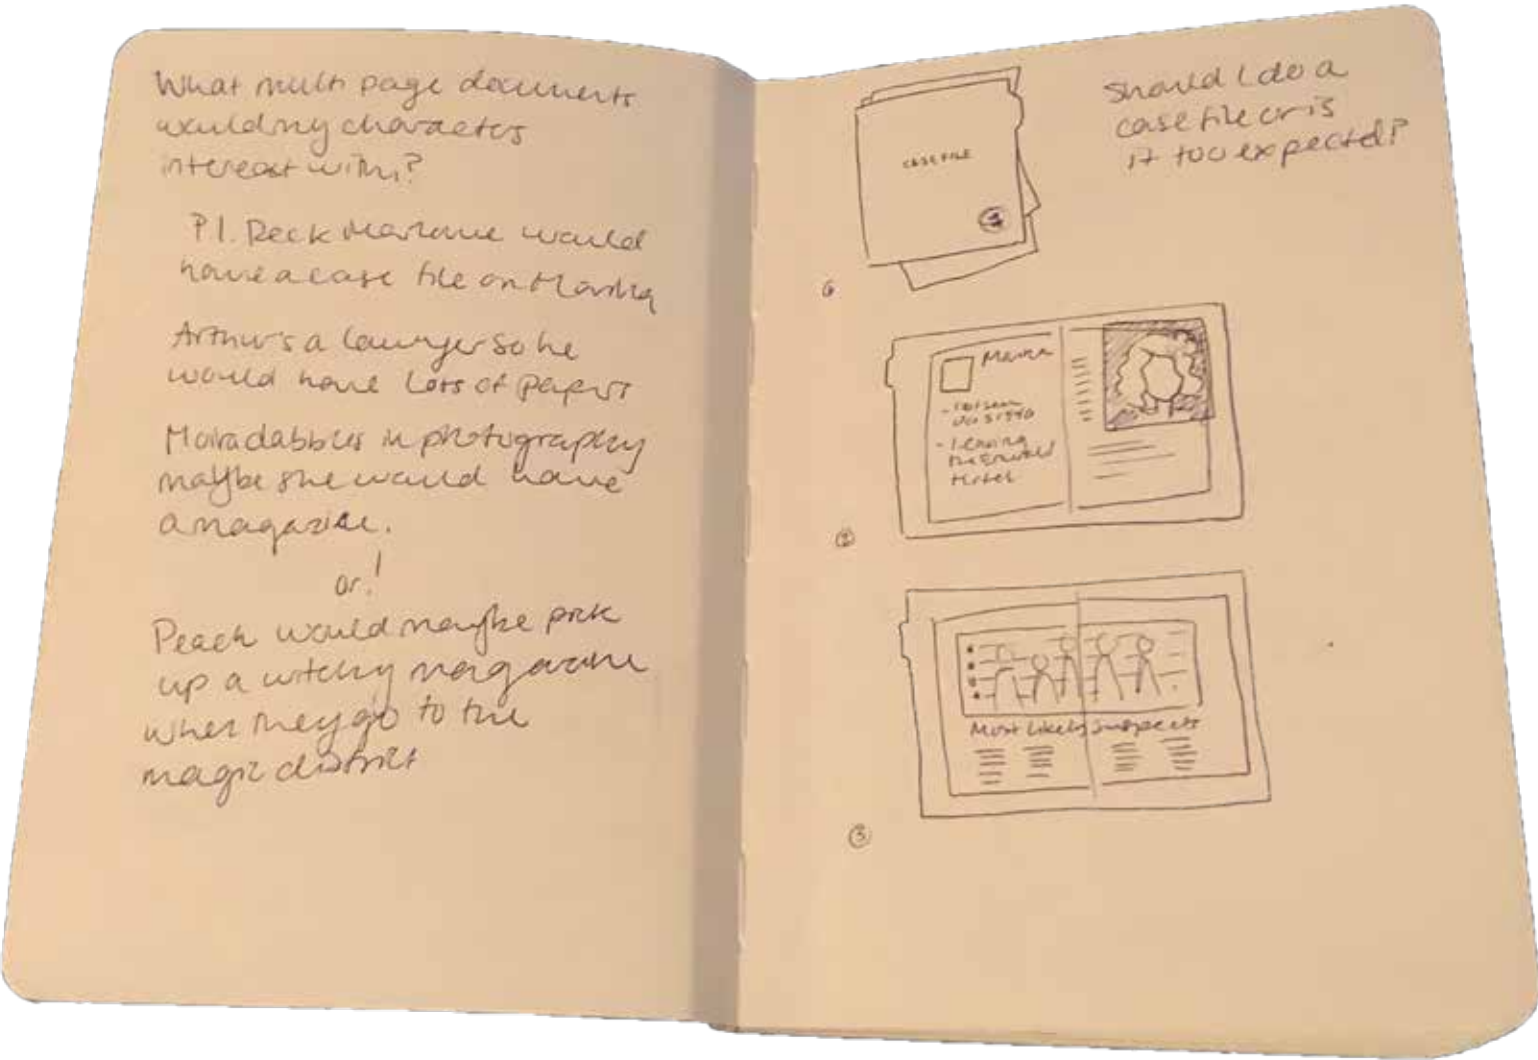 What multi page documents
would my characters
interact with?
P.I. Deck Marlowe would
have a case file on Moira
Arthur's a lawyer so he
would have lots of papers
Moira dabbles in photography
maybe she would have
a magazine.
or!
Peach would maybe pick
up a witchy magazine
when they go to the
magic district
Should I do a
case file or is
it too expected?
CASE FILE
Moira
- last seen
- leaving
the
Hotel
②
Most Likely Suspects
③